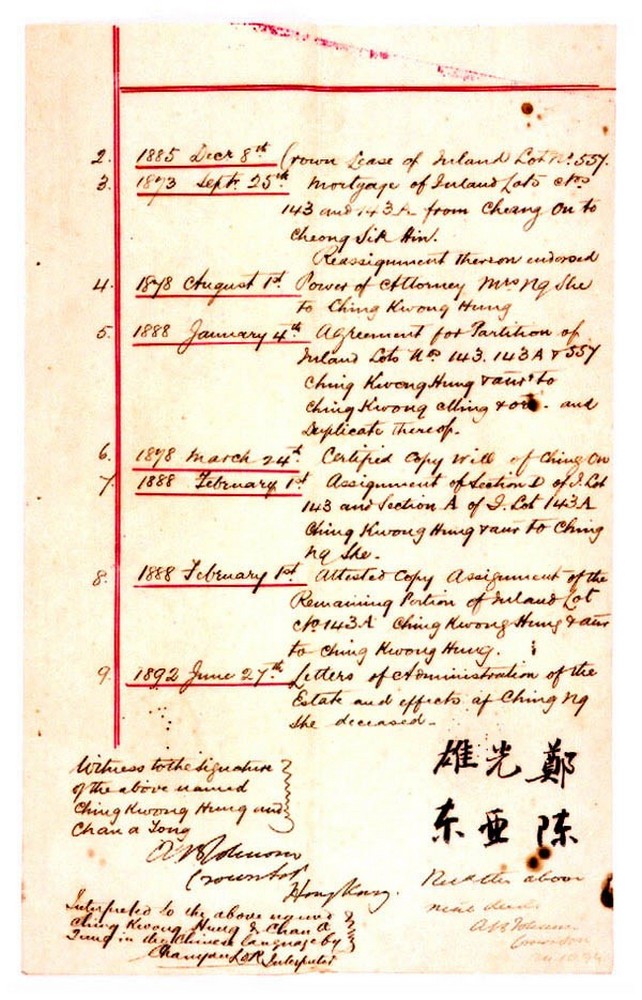 2. 1885 Decr 8th Crown Lease of Inland Lot No. 557.
3. 1873 Septr. 25th Mortgage of Inland Lots Nos
143 and 143A from Cheang On to
Cheong Sik Hin.
Reassignment thereon endorsed
4. 1878 August 1st Power of Attorney Mrs Ng She
to Ching Kwong Hung
5. 1888 January 4th Agreement for Partition of
Inland Lots Nos 143. 143A & 557
Ching Kwong Hung & anr to
Ching Kwong Ming & ors. and
Duplicate thereof.
6. 1878 March 24th. Certified Copy Will of Ching On
7. 1888 February 1st Assignment of Section D of I. Lot
143 and Section A of I. Lot 143A
Ching Kwong Hung & anr to Ching
Ng She.
8. 1888 February 1st. Attested Copy Assignment of the
Remaining Portion of Inland Lot
No. 143A Ching Kwong Hung & anr
to Ching Kwong Hung.
9. 1892 June 27th Letters of Administration of the
Estate and effects of Ching Ng
She deceased.
Witness to the signature
of the above named
Ching Kwong Hung and
Chan a Tong
Crown Solr
Hong Kong.
Interpreted to the above named
Ching Kwong Hung & Chan A
Tong in the Chinese language by
Interpreter
雄光鄭
东亜陈
the above
deeds